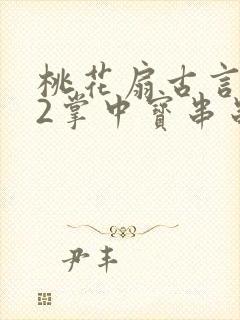 桃花扇古言
2掌中寳串
尹丰